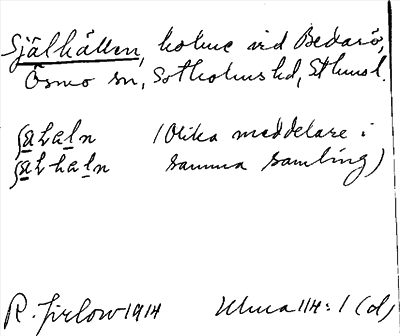 Själhällen, holme vid Bedarö,
Ösmo sn, Sotholms hd, Sthms l.
ʃæhaln (Olika meddelare i
ʃælhaln samma samling)
R. Jirlow 1914 Ulma 114:1 (d)